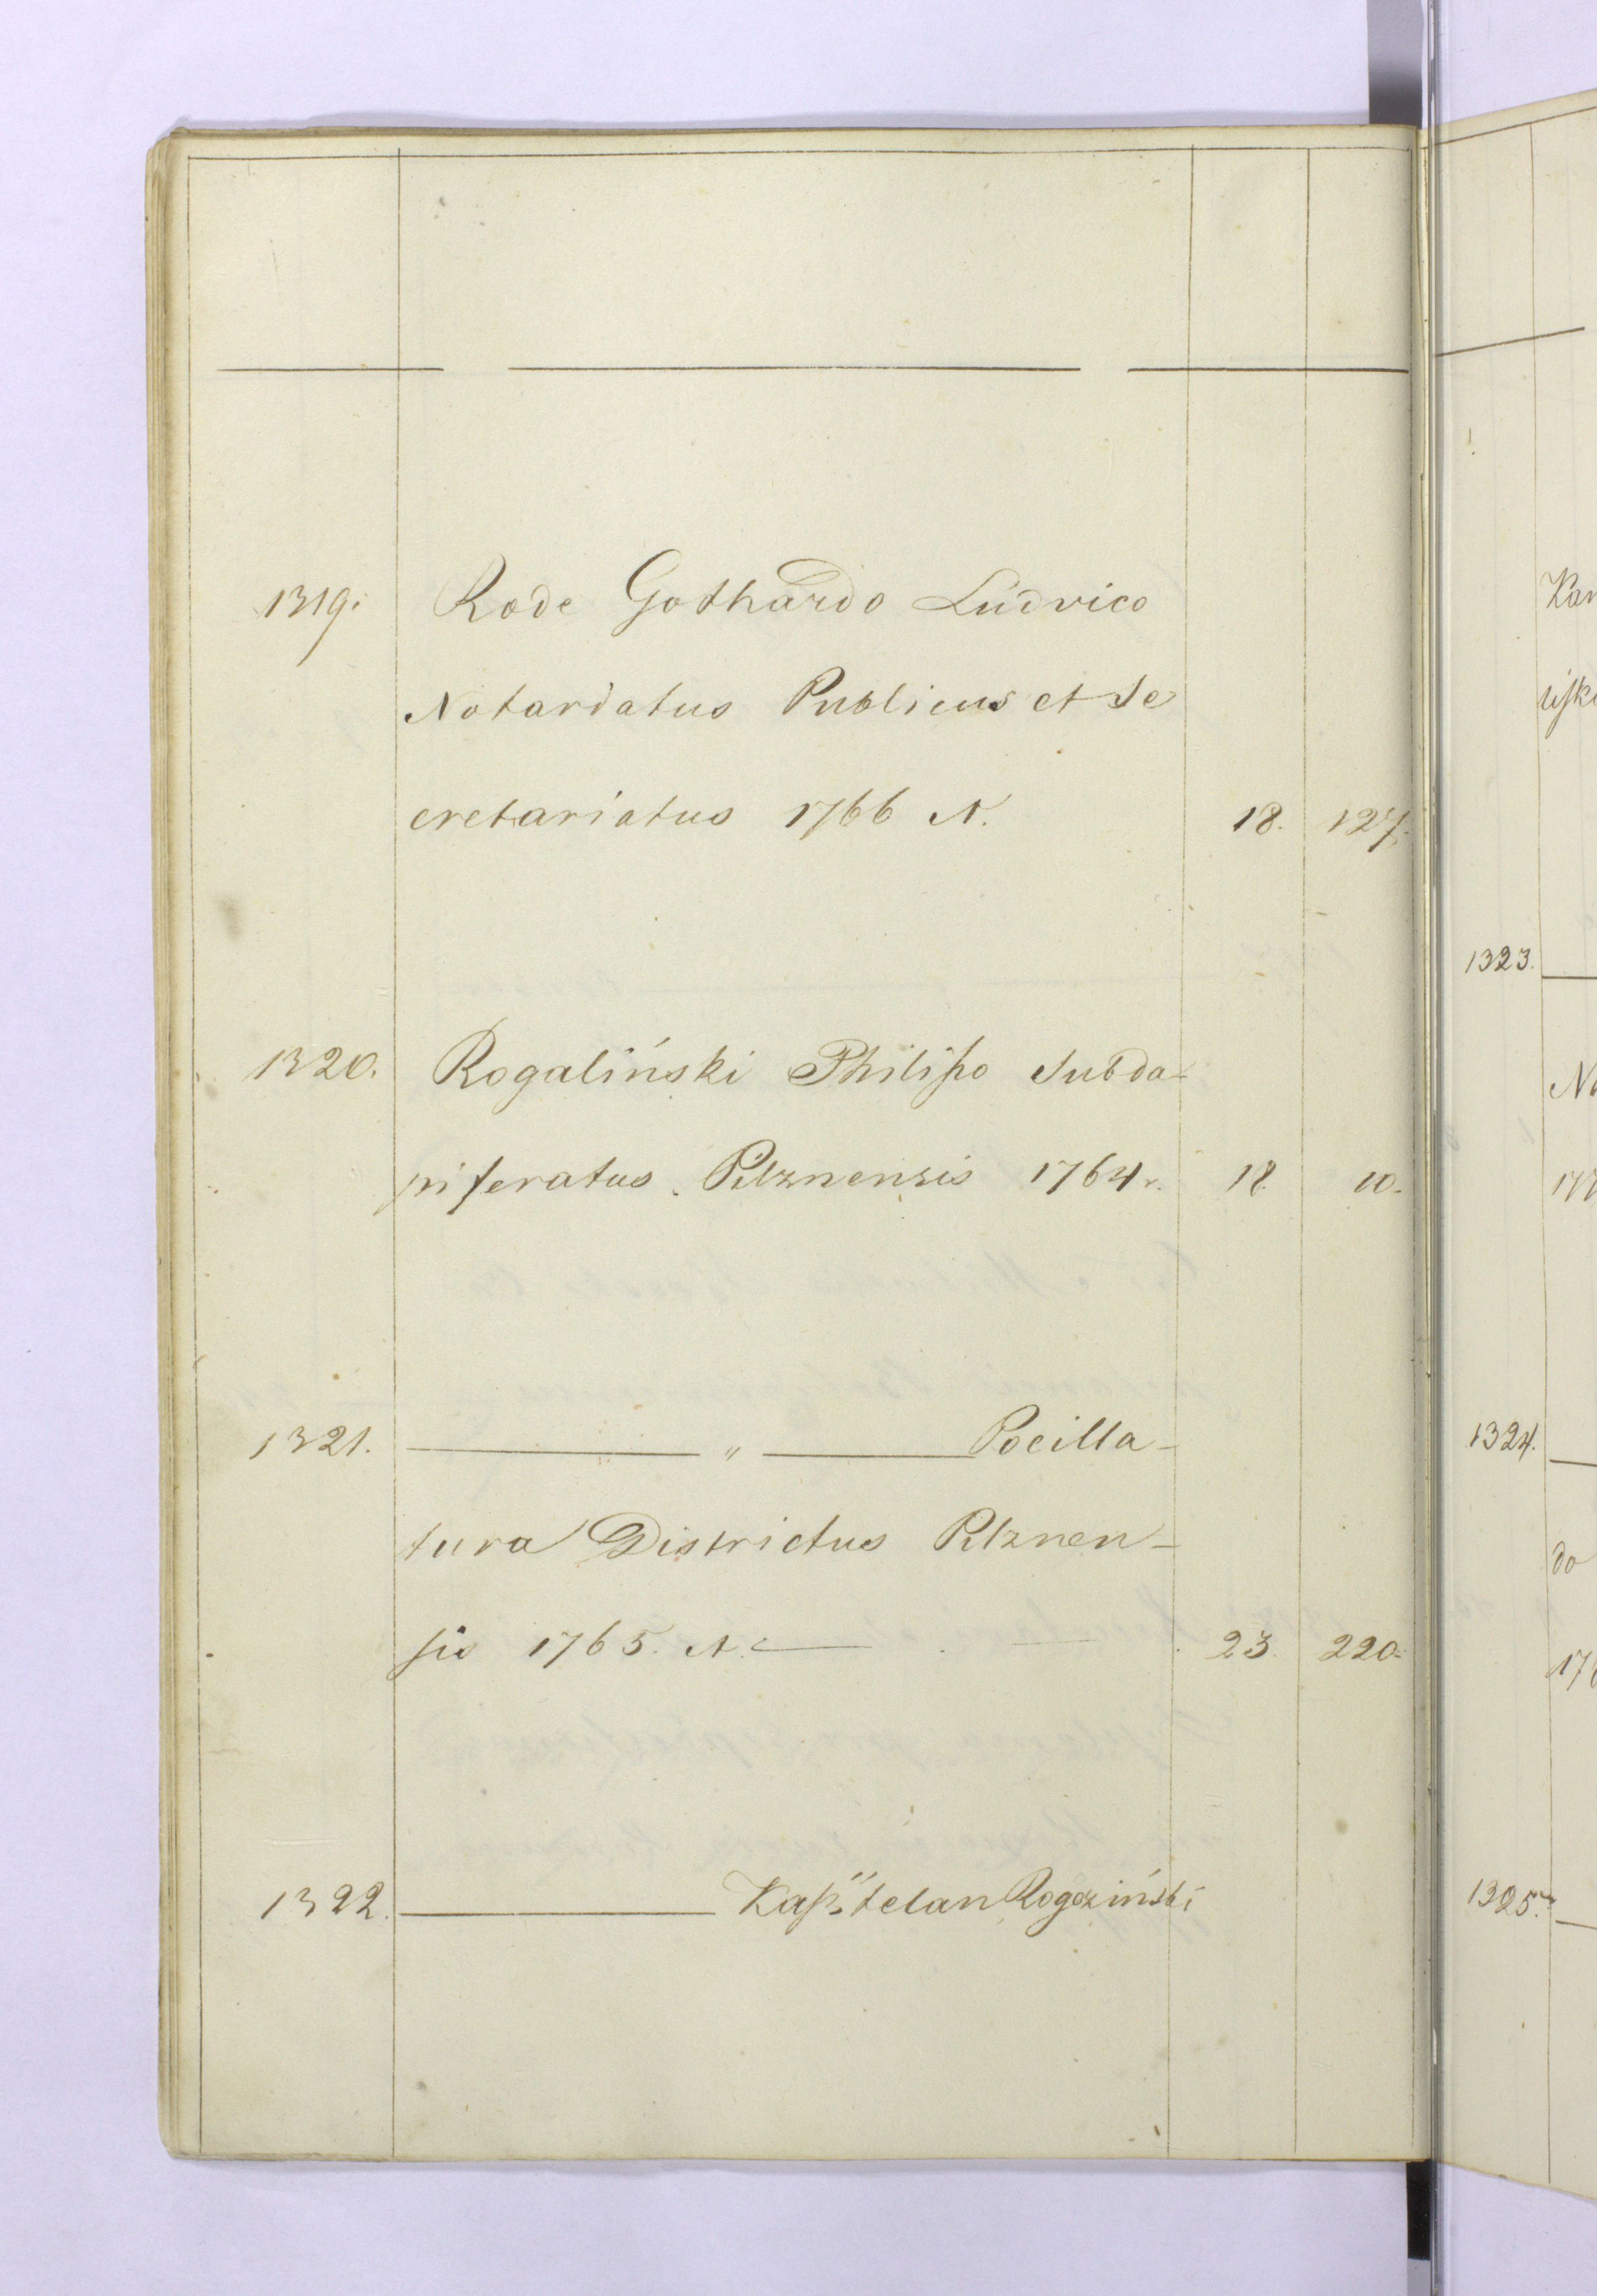 1319. Rode Gothardo Ludvico
Notardatus Publicus et Se
cretariatus 1766 N. 18. 127.
1320. Rogaliński Philipo Subda-
piferatus Pilznensis 1764 r. 18. 10.
1321. — „ — Pocilla-
tura Districtus Pilznen-
sis 1765. N. — 23. 220.
1322. — Kasztelan Rogoziński
1323.
1324.
do
1325.